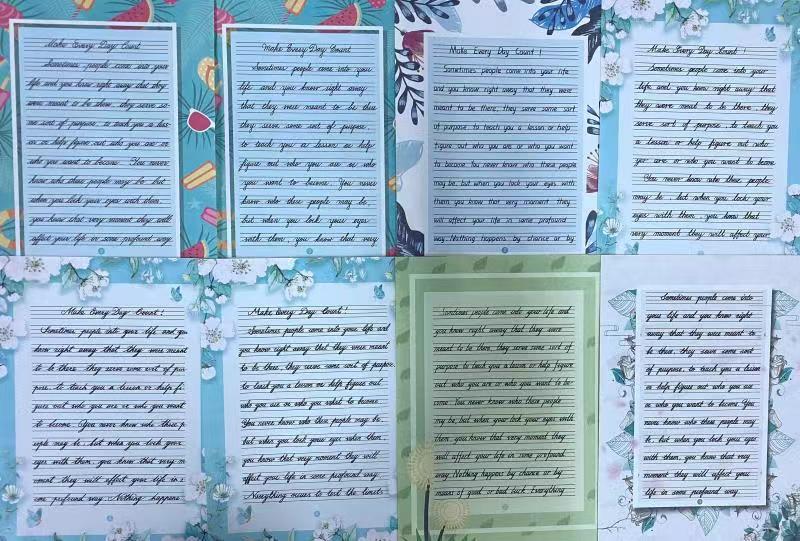 Make Every Day Count
Sometimes people come into your
life and you know right away that they
were meant to be there, they serve so-
me sort of purpose to teach you a les-
son or help figure out who you are or
who you want to become You never
know who these people may be but
when you lock your eyes with them,
you know that very moment they will
affect your life in some profound way
Make Every Day Count
Sometimes people come into you
life and you know right away
that they were meant to be the
they serve some sort of purpose,
to teach you a lesson or help
figure out who you are or who
you want to become. You never
know who these people may be,
but when you lock your eyes
with them, you know that very
Make Every Day Count !
Sometimes people come into your life
and you know right away that they were
meant to be there, they serve some sort
of purpose to teach you a lesson or help
figure out who you are or who you want
to become. You never know who these people
may be, but when you lock your eyes with
them you know that very moment they
will affect your life in some profound
way. Nothing happens by chance or by
Make Every Day Count !
Sometimes people come into your
life and you know right away that
they were meant to be there, they
serve sort of purpose, to teach you
a lesson or help figure out who
you are or who you want to become
You never know who these people
may be, but when you lock your
eyes with them, you know that
very moment they will affect your
Make Every Day Count !
Sometimes people into your life and you
know right away that they were meant
to be there they serve some sort of pur-
pose to teach you a lesson or help fi-
gure out who you are or who you want
to become. You never know who these p
eople may be, but when you lock your
eyes with them, you know that very m
oment they will affect your life in s
ome profound way. Nothing happens
Make Every Day Count !
Sometimes people come into your life and
you know right away that they were meant
to be there, they serve some sort of purpose,
to teach you a lesson or help figure out
who you are or who you what to become
You never know who these people may be,
but when you lock your eyes when them,
you know that very moment they will
affect your life in some profound way
to test the limits
Sometimes people come into your life and
you know right away that they were
meant to be there, they serve some sort of
purpose to teach you a lesson or help figure
out who you are or who you want to be-
come You never know who these people
my be, but when you lock your eyes with
them, you know that very moment they
will affect your life in some profound
way Nothing happens by chance or by
means of goal or bad luck Everything
Sometimes people come into
your life and you know right
away that they were meant to
be there, they serve some sort
of purpose, to teach you a lesson
or help figure out who you are
or who you want to become. You
never know who these people may
be, but when you lock your eyes
with them, you know that very
moment they will affect your
life in some profound way.